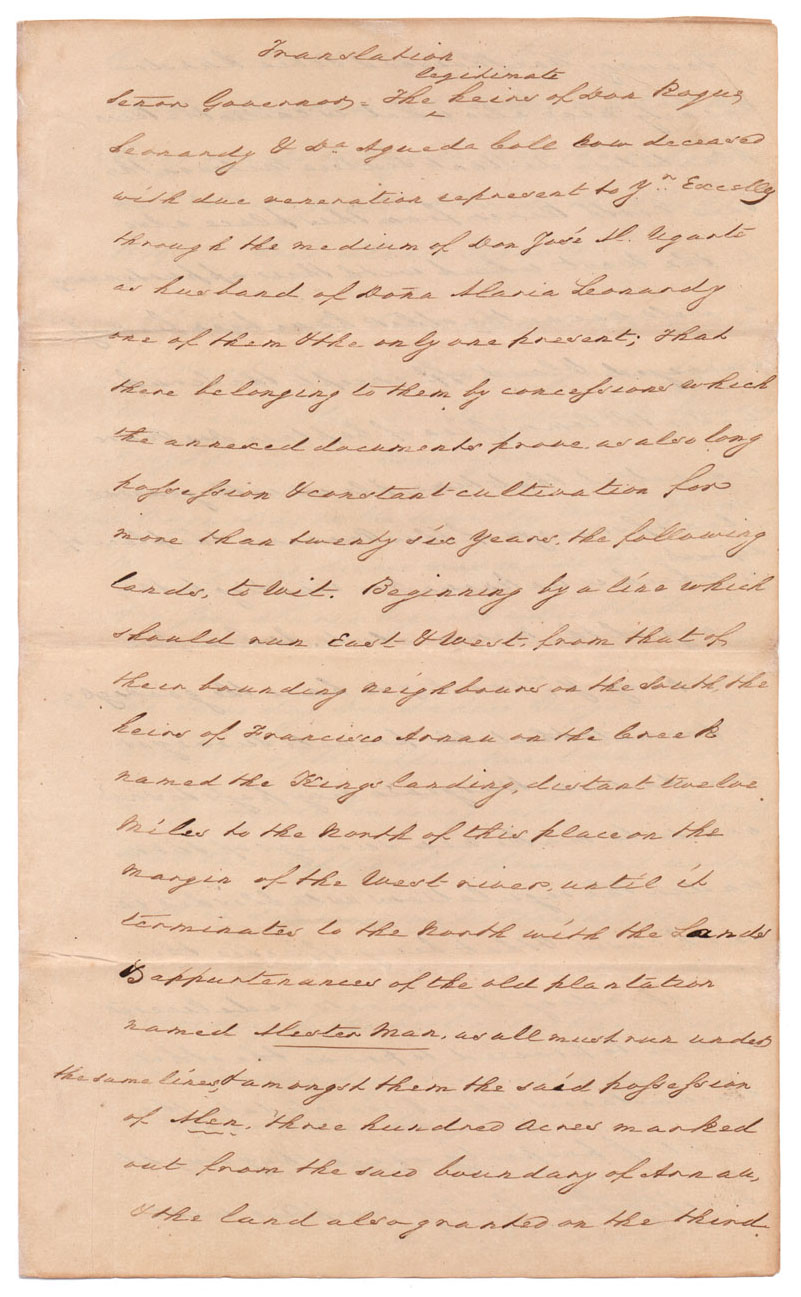 Translation
legitimate
Señor Governor, = The ‸ heirs of Don Roque
Leonardy & Da Agueda Coll now deceased
with due veneration represent to Yr. Excelly
through the medium of Don José M. Ugarte
as husband of Doña Maria Leonardy
one of them & the only one present; That
there belonging to them by concessions which
the annexed documents prove as also long
possession & constant cultivation for
more than twenty six Years, the following
lands, to Wit. Beginning by a line which
should run East & West, from that of
their bounding neighbours on the South, the
heirs of Francisco Arnau on the Creek
named the Kings landing, distant twelve
Miles to the North of this place on the
Margin of the West river, until it
terminates to the North with the Lands
& appurtenances of the old plantation
named Mester Man, as all must run under
the same lines, & amongst them the said possession
of Men, three hundred Acres marked
out from the said boundary of Arnau,
& the land also granted on the third